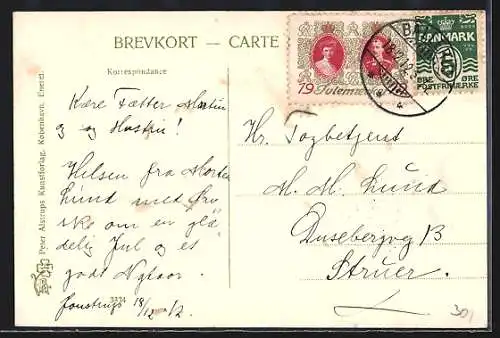 BREVKORT — CARTE
Korrespondance
Kære Fætter Martin
og Hustru!
Hilsen fra Morten
Lund med Øn-
ske om en glæ
delig Jul og et
godt Nytaar.
18/12 12
3374
Peter Alstrups Kunstforlag, København. Eneret.
19 Julemærke 12
DANMARK
ØRE
POSTFRIMÆRKE
Hr. Togbetjent
M. M. Lund
B
Struer.
30,